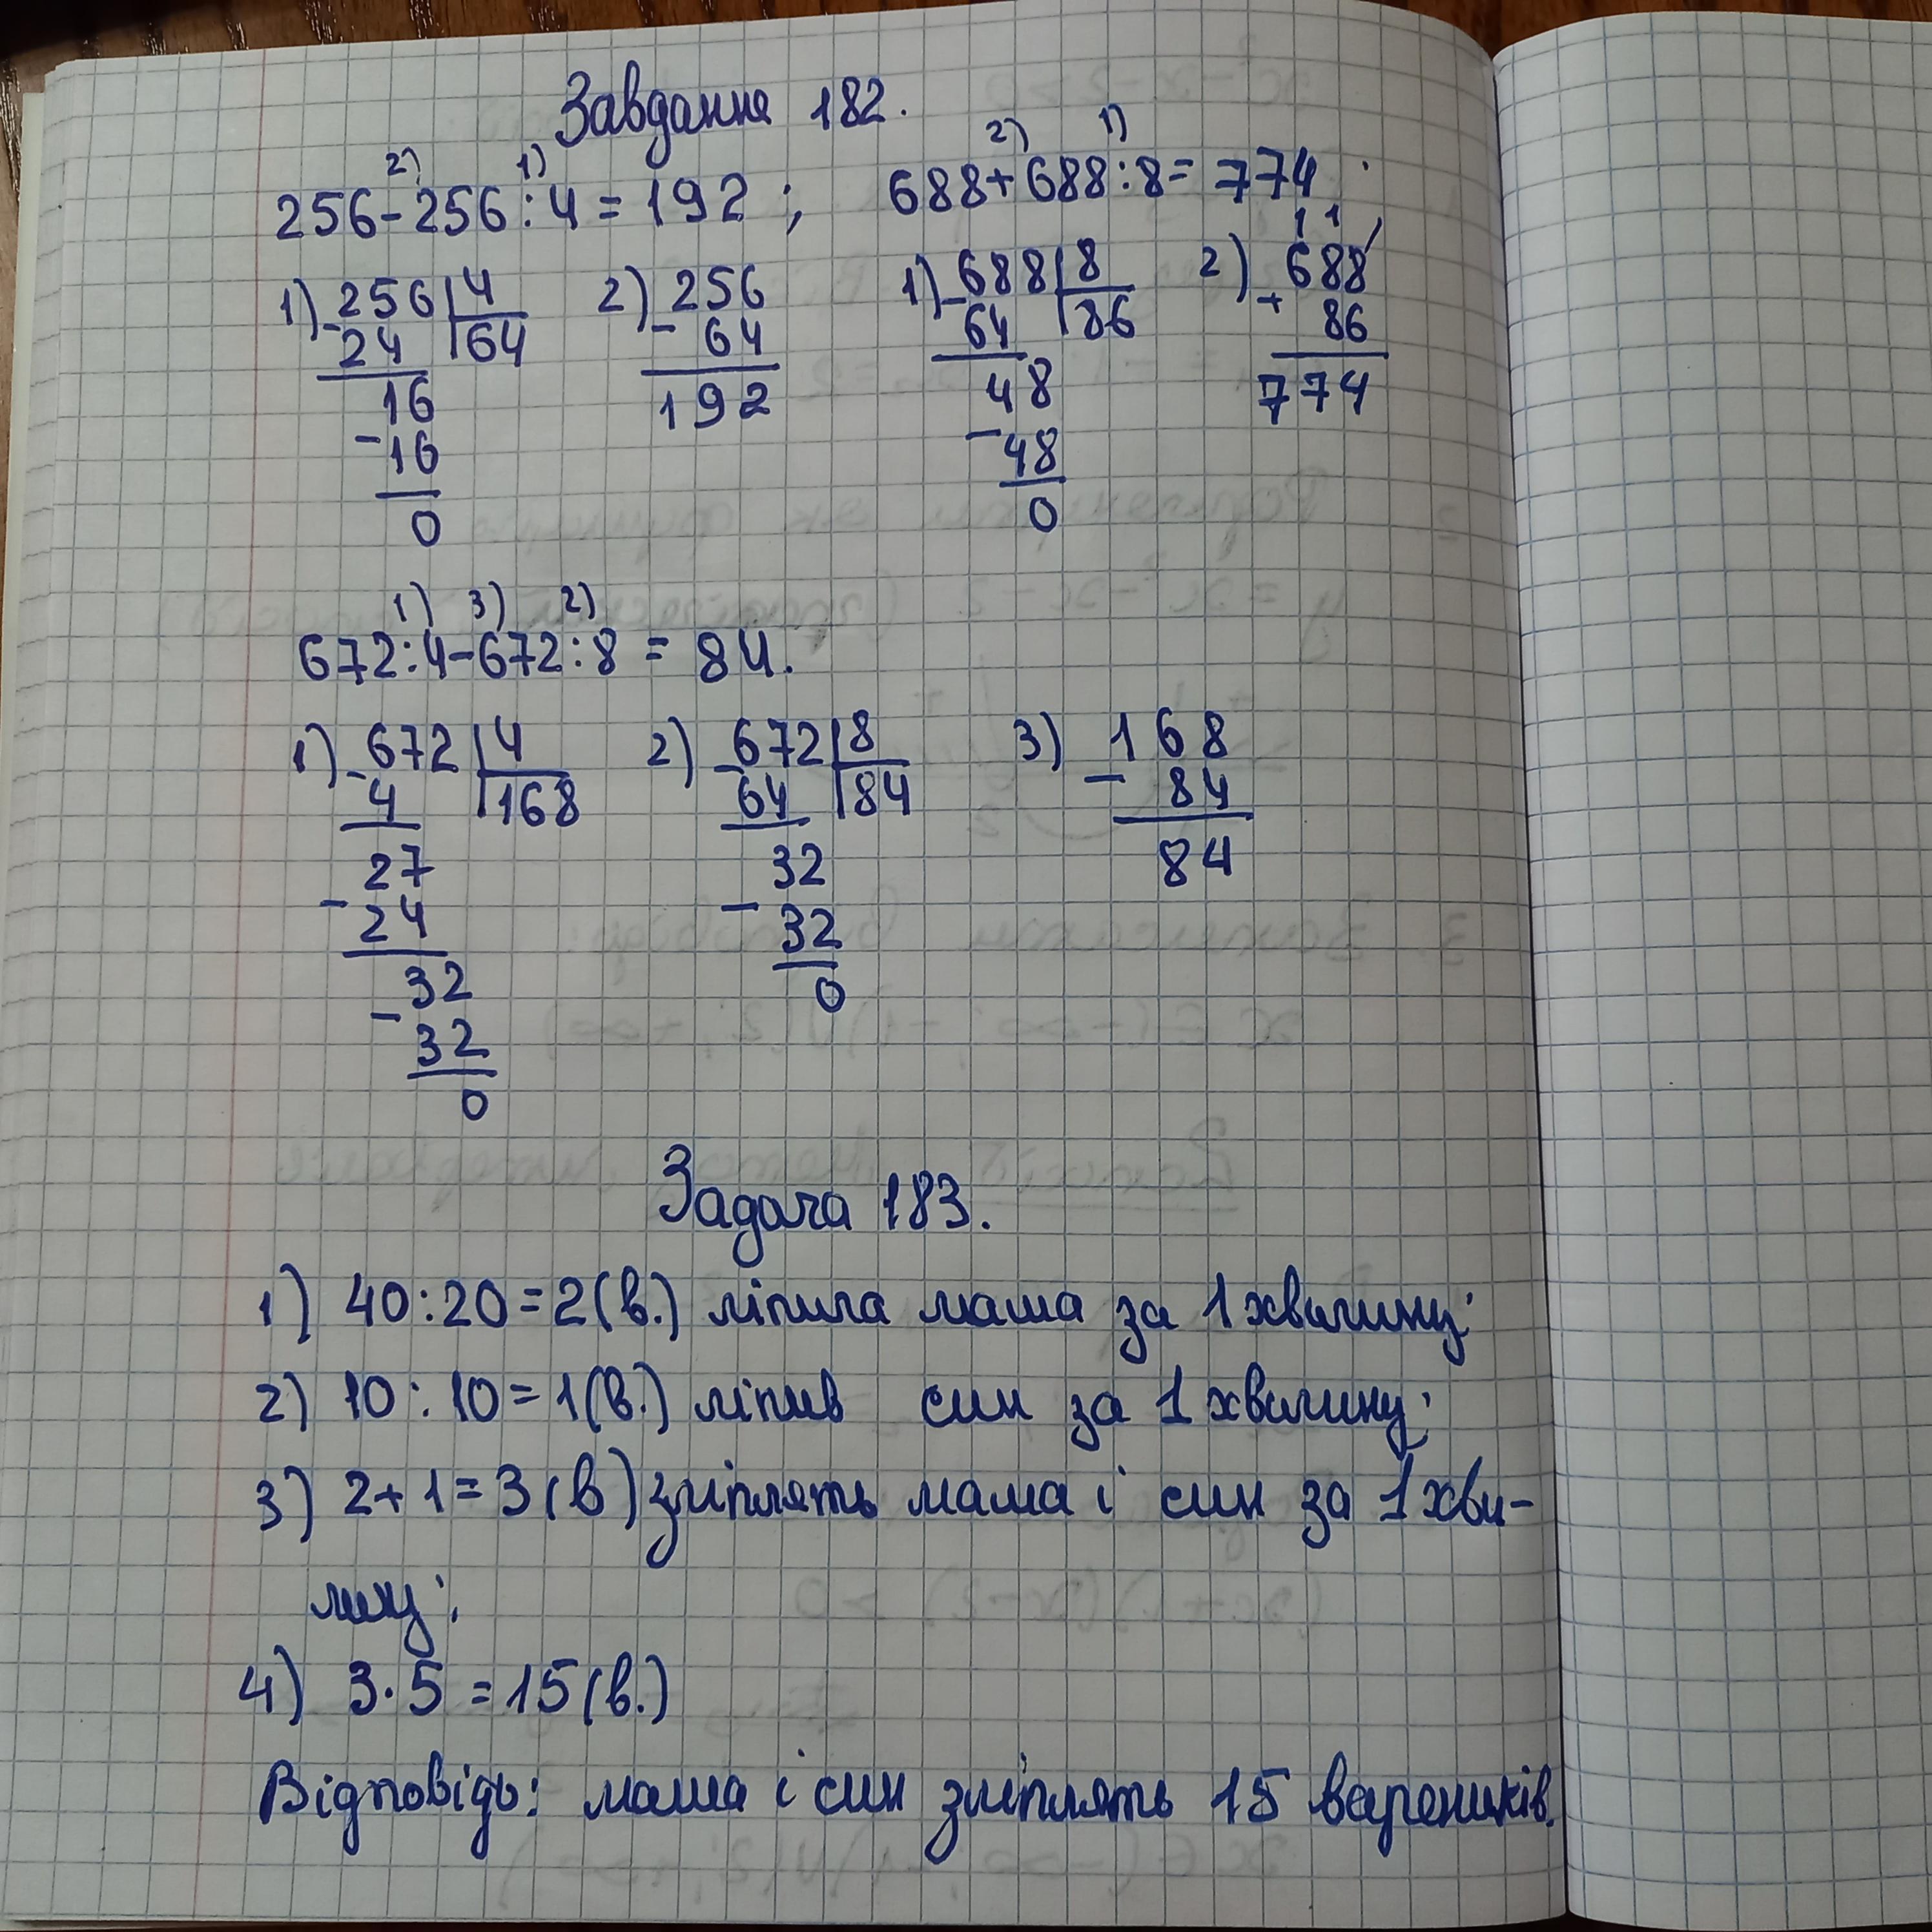 Завдання 182.
2) 1)
256-256:4=192;
2) 1)
688+688:8=774
1) 256 4
- 24 64
16
- 16
0
2) 256
- 64
192
1) 688 8
- 64 86
48
- 48
0
1 1
2) 688
+ 86
774
1) 3) 2)
672:4-672:8=84.
1) 672 4
- 4 168
27
- 24
32
- 32
0
2) 672 8
- 64 84
32
- 32
0
3) 168
- 84
84
Задача 183.
1) 40:20=2(в.) ліпила мама за 1 хвилину;
2) 10:10=1(в.) ліпив син за 1 хвилину;
3) 2+1=3(в) зліплять мама і син за 1 хви-
лину;
4) 3·5=15(в.)
Відповідь: мама і син зліплять 15 вареників.